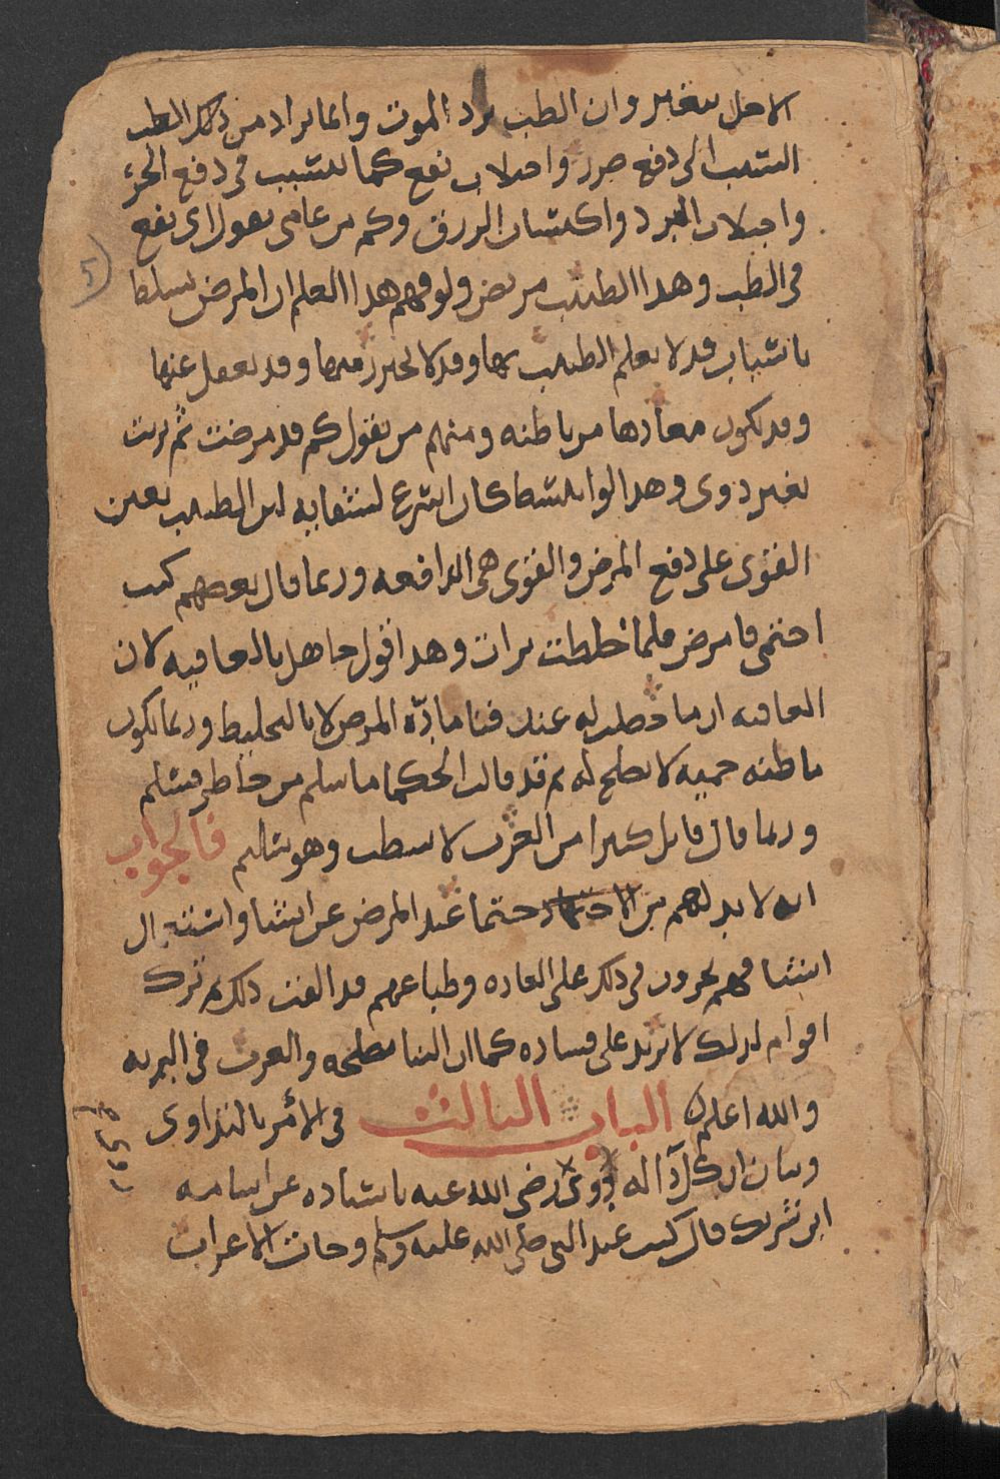 الاجل يتغير وان الطب يرد الموت وانما يراد من ذلك الطب
التسبب الى دفع ضرر واجتلاب نفع كما يتسبب في دفع الحر
واجتلاب البرد واكتساب الرزق وكم من عامي يقول اي نفع
في الطب وهذا الطبيب مريض ولو فهم هذا العلم ان المرض يتسلط
باسباب قد لا يعلم الطبيب بها وقد لا يحترز منها وقد يغفل عنها
وقد يكون معادها من باطنه ومنهم من يقول كم قد مرضت ثم بريت
بغير دوى وهذا لو ابلشطا كان اسرع لشفايه لان الطبيب يعين
القوى على دفع المرض والقوى هي الدافعه وربما قال بعضهم كنت
احتمي فامرض فلما خلطت برات وهذا قول جاهل بالعافيه لان
العافيه انما حصلت له عند فنا مادّه المرض لا بالتخليط وربما يكون
باطنه حميه لا تصلح له ثم قد قالت الحكما ما سلم من خاطر فسلم
وربما قال قايل كثيرا من العرب لا يتطب وهو سالم فالجواب
انه لا بد لهم من الاحتما حتما عند المرض عن اشيا واستعمال
اشيا فهم يجرون في ذلك على العاده وطباعهم قد الفت ذلك ثم ترك
اقوام لذلك لا تزيد على فساده كما ان البنا مصلحه والعرب في البريه
والله اعلم الباب الثالث في الامر بالتداوى
وبيان ان كل دآ له دوى رضي الله عنه باسناده عن اسامه
ابن شريك قال كنت عند النبي صلى الله عليه وسلم وجات الاعراب